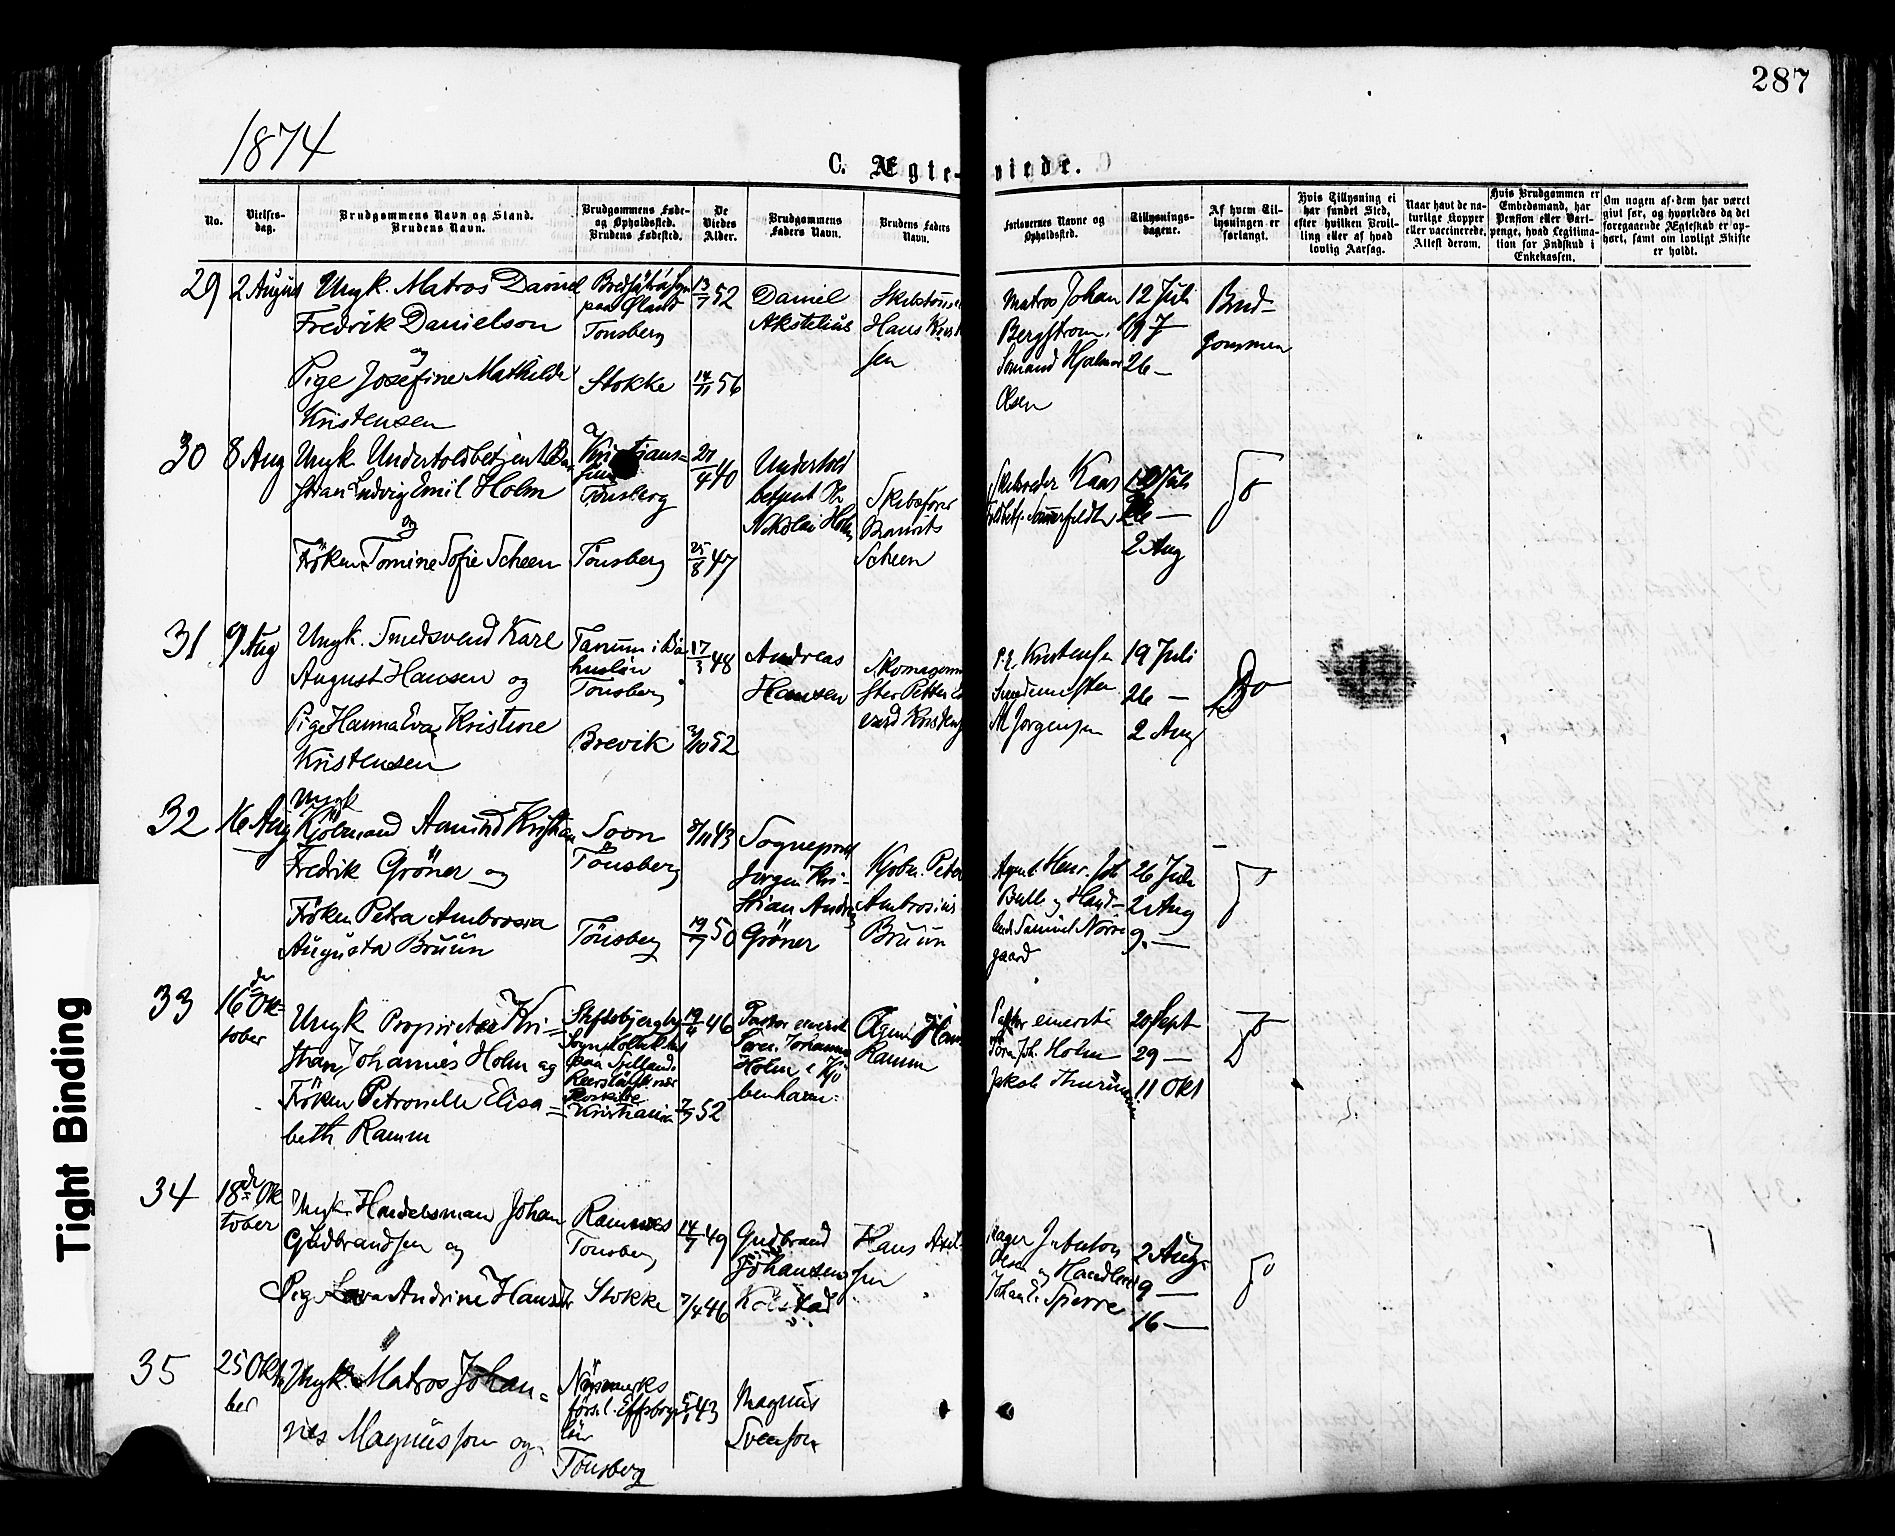 287
1874
C. Ægte-viede.
No.
Vielses-
dag.
Brudgommens Navn og Stand.
Brudens Navn.
Brudgommens Føde-
og Opholdssted.
Brudens Fødested.
De
Viedes
Alder.
Brudgommens
Faders Navn.
Brudens Faders
Navn.
Forlovernes Navne og
Opholdssted.
Tillysnings-
dagene.
Af hvem Til-
lysningen er
forlangt.
Hvis Tillysning ei
har fundet Sted,
efter hvilken Bevil-
ling eller af hvad
lovlig Aarsag.
Naar havt de na-
turlige Kopper
eller vaccinerede.
Attest derom.
Hvis Brudgommen er
Embedsmand, har
Pension eller Vart-
penge, hvad Legitima-
tion for Indskud i
Enkekassen.
Om nogen af dem har været
gift før, og hvorledes da det
foregaaende Ægteskab er op-
hørt, samt om lovligt Skifte
er holdt.
29
2 August
Ungk. Matros Daniel
Fredrik Danielson
og
Pige Josefine Mathilde
Kristensen
paa Øland
Tonsberg
Stokke
13/7 52
14/11 56
Daniel
Akstelius
Hans Krist
sen
Matros Johan
Bergstrom
Hjalmar
Olsen
12 Juli
19
26 —
Brud-
gommen
30
8 Aug
Ungk. Undertoldbetjent
Ludvig Emil Holm
og
Fröken Tomine Sofie Scheen
Kristians-
Tönsberg
Tönsberg
21/4 40
25/8 47
Undertold
betjent
Nikolai Holm
Skibsfører
Scheen
Skibsreder Kaas
Juli
26 —
2 Aug
Do
31
9 Aug
Ungk. Smedsvend Karl
August Hansen og
Pige Hanna Eva Kristine
Kristensen
Tanum i Ba
huslän
Tönsberg
Brevik
17/3 48
2/10 52
Andreas
Hansen
Kristensen
M Jorgensen
19 Juli
26 —
2 Aug
Do
32
16 Aug
Ungk
Kjöbmand Amund Kristian
Fredrik Gröner og
Fröken Petra Ambrosia
Augusta Bruun
Soon
Tönsberg
Tönsberg
8/11 43
19/7 50
Sogneprest
Jörgen Kri-
stian Andr
Gröner
Kjobm. Peter
Ambrosius
Bruun
Agent Henr. Joh
Bull og Hand-
Samuel Nörre
gaard
26 Juli
2 Aug
9. —
Do
33
16 de Ok-
tober
Ungk Proprietær Kri-
stian Johannes Holm og
Fröken Petronelle Elisa-
beth Ramm
Sogn Holbæk
paa Sjelland.
Roeskilde
Kristiania
19/4 46
7/9 52
Pastor emerit
Johannes
Holm i Kjö
benhavn.
Agent
Ramm
Pastor emeriti
Joh. Holm
Jakob
20 Sept
29 —
11 Okt
Do
34
18de Ok
tober
Ungk. Handelsmand Johan
Gudbrandsen og
Pige Andrine Hansen
Ramnes
Tonsberg
Stokke
14/7 49
7/4 46
Gudbrand
Johansen
Kolstad
Hans Axel-
sen
Anton
Olsen og Handlende
Johan Sperre
2 Aug.
9 —
16 —
Do
35
25 Okto
ber
Ungk. Matros Johan-
nes Magnusson og
Tönsberg
5/1 43
Magnus
Svenson
Tight Binding